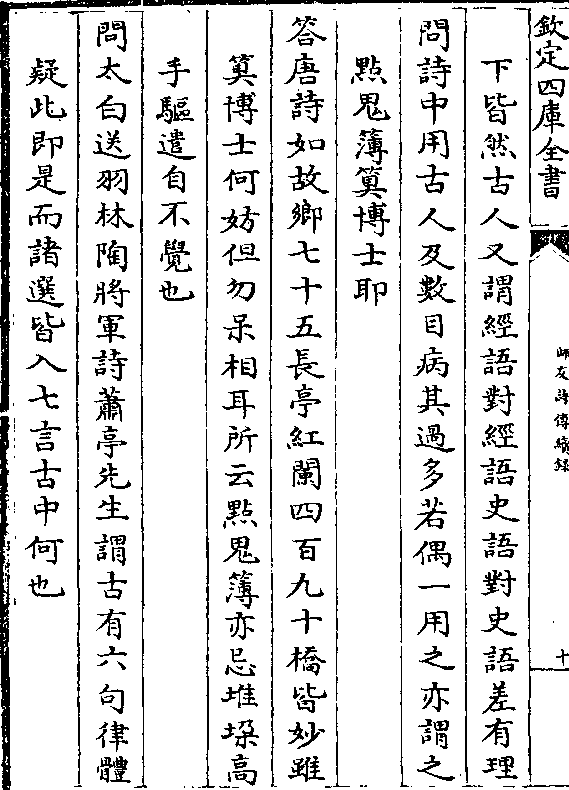 欽定四庫全書
師友詩傳續錄
十
下皆然古人又謂經語對經語史語對史語差有理
問詩中用古人及數目病其過多若偶一用之亦謂之
點鬼簿筭博士耶
答唐詩如故鄉七十五長亭紅闌四百九十橋皆妙雖
筭博士何妨但勿呆相耳所云點鬼簿亦忌堆垜高
手驅遣自不覺也
問太白送羽林陶將軍詩蕭亭先生謂古有六句律體
疑此即是而諸選皆入七言古中何也